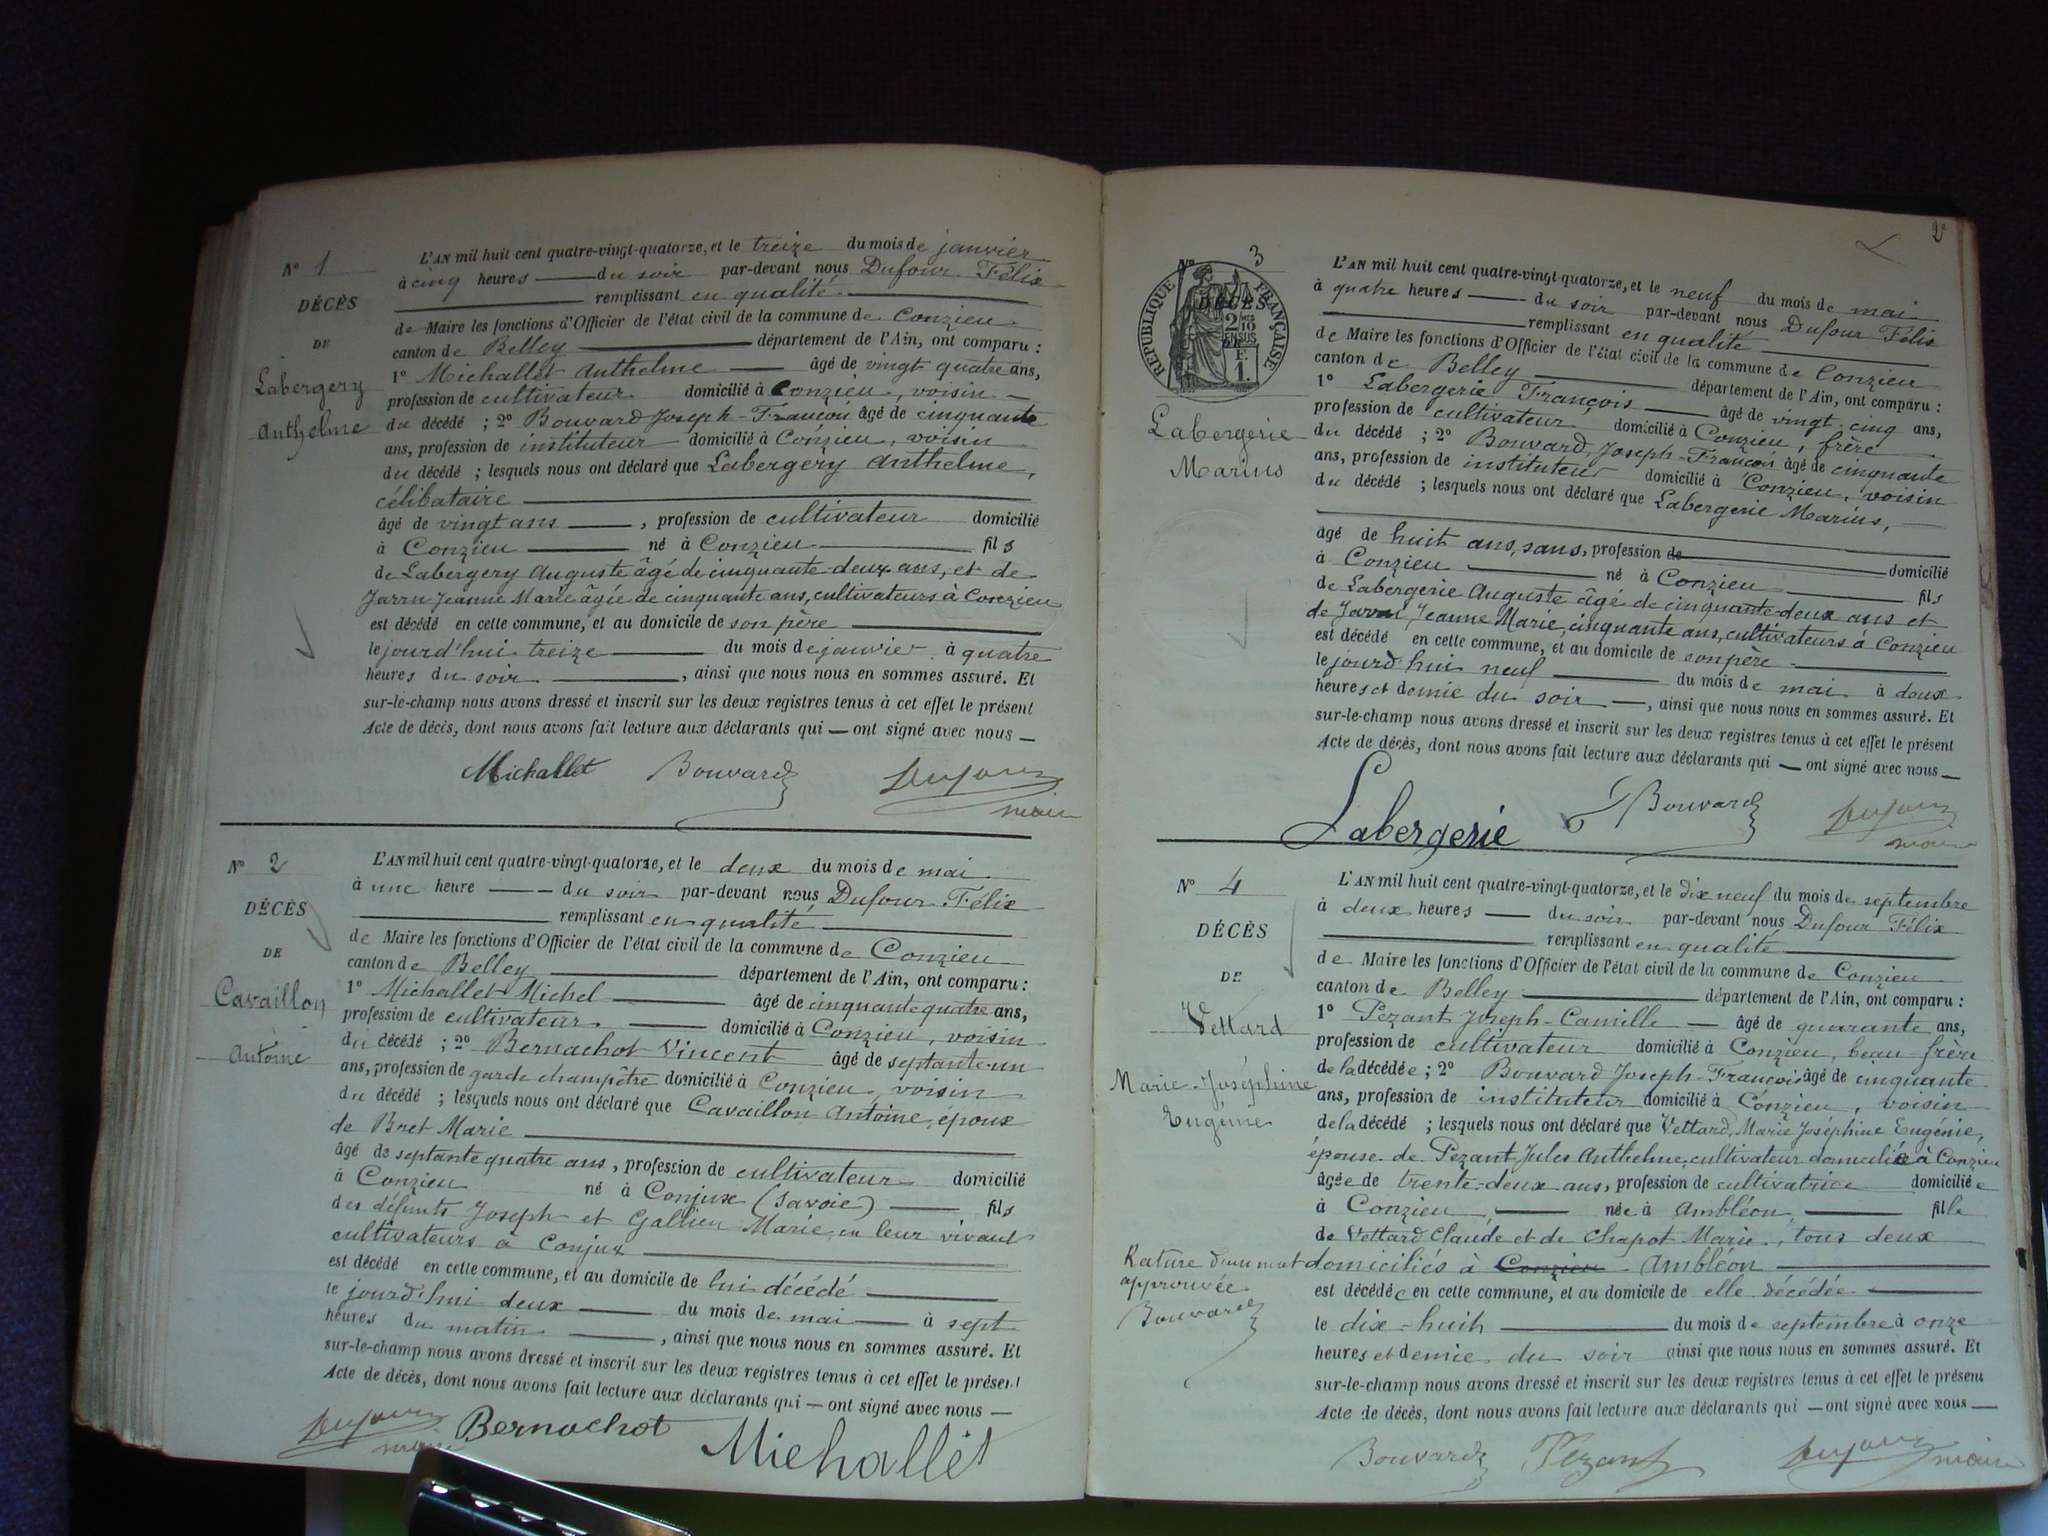 N° 1
DÉCÈS
DE
Labergery
Anthelme
L'AN mil huit cent quatre-vingt-quatorze, et le treize du mois de janvier
à cinq heures du soir par-devant nous Dufour Félix
remplissant en qualité
de Maire les fonctions d'Officier de l'état civil de la commune de Conzieu
canton de Belley département de l'Ain, ont comparu :
1° Michallet Anthelme âgé de vingt quatre ans,
profession de cultivateur domicilié à Conzieu, voisin
du décédé ; 2° Bouvard Joseph-François âgé de cinquante
ans, profession de instituteur domicilié à Conzieu, voisin
du décédé ; lesquels nous ont déclaré que Labergery Anthelme,
célibataire
âgé de vingt ans, profession de cultivateur domicilié
à Conzieu né à Conzieu fils
de Labergery Auguste âgé de cinquante-deux ans, et de
Jeanne Marie âgée de cinquante ans, cultivateurs à Conzieu
est décédé en cette commune, et au domicile de son père
le jourd'hui treize du mois de janvier à quatre
heures du soir, ainsi que nous nous en sommes assuré. Et
sur-le-champ nous avons dressé et inscrit sur les deux registres tenus à cet effet le présent
Acte de décès, dont nous avons fait lecture aux déclarants qui — ont signé avec nous —
Michallet Bouvard Dufour
maire
N° 2
DÉCÈS
DE
Cavaillon
Antoine
L'AN mil huit cent quatre-vingt-quatorze, et le deux du mois de mai
à une heure du soir par-devant nous Dufour Félix
remplissant en qualité
de Maire les fonctions d'Officier de l'état civil de la commune de Conzieu
canton de Belley département de l'Ain, ont comparu :
1° Michallet Michel âgé de cinquante quatre ans,
profession de cultivateur domicilié à Conzieu, voisin
du décédé ; 2° Bernachot Vincent âgé de septante-un
ans, profession de garde champêtre domicilié à Conzieu, voisin
du décédé ; lesquels nous ont déclaré que Cavaillon Antoine, époux
de Bret Marie
âgé de septante quatre ans, profession de cultivateur domicilié
à Conzieu né à Conjux (Savoie) fils
des défunts Joseph et Gallien Marie, en leur vivant
cultivateurs à Conjux
est décédé en cette commune, et au domicile de lui décédé
le jourd'hui deux du mois de mai à sept
heures du matin, ainsi que nous nous en sommes assuré. Et
sur-le-champ nous avons dressé et inscrit sur les deux registres tenus à cet effet le présent
Acte de décès, dont nous avons fait lecture aux déclarants qui — ont signé avec nous —
Dufour Bernachot Michallet
maire
2
N° 3
DÉCÈS
RÉPUBLIQUE FRANÇAISE
2 10 EN SUS
F. 1.
Labergerie
Marius
L'AN mil huit cent quatre-vingt-quatorze, et le neuf du mois de mai
à quatre heures du soir par-devant nous Dufour Félix
remplissant en qualité
de Maire les fonctions d'Officier de l'état civil de la commune de Conzieu
canton de Belley département de l'Ain, ont comparu :
1° Labergerie François âgé de vingt-cinq ans,
profession de cultivateur domicilié à Conzieu, frère
du décédé ; 2° Bouvard, Joseph-François âgé de cinquante
ans, profession de instituteur domicilié à Conzieu, voisin
du décédé ; lesquels nous ont déclaré que Labergerie Marius,
âgé de huit ans, sans, profession de domicilié
à Conzieu né à Conzieu fils
de Labergerie Auguste âgé de cinquante-deux ans et
de Jeanne Marie, cinquante ans, cultivateurs à Conzieu
est décédé en cette commune, et au domicile de son père
le jourd'hui neuf du mois de mai à deux
heures et demie du soir, ainsi que nous nous en sommes assuré. Et
sur-le-champ nous avons dressé et inscrit sur les deux registres tenus à cet effet le présent
Acte de décès, dont nous avons fait lecture aux déclarants qui — ont signé avec nous —
Labergerie Bouvard Dufour
maire
N° 4
DÉCÈS
DE
Vettard
Marie-Joséphine
Eugénie
L'AN mil huit cent quatre-vingt-quatorze, et le dix neuf du mois de septembre
à deux heures du soir par-devant nous Dufour Félix
remplissant en qualité
de Maire les fonctions d'Officier de l'état civil de la commune de Conzieu
canton de Belley département de l'Ain, ont comparu :
1° Pezant Joseph-Camille âgé de quarante ans,
profession de cultivateur domicilié à Conzieu, beau-frère
de la décédée ; 2° Bouvard Joseph-François âgé de cinquante
ans, profession de instituteur domicilié à Conzieu, voisin
de la décédé ; lesquels nous ont déclaré que Vettard, Marie Joséphine Eugénie,
épouse de Pezant Jules Anthelme, cultivateur domicilié à Conzieu
âgée de trente-deux ans, profession de cultivatrice domiciliée
à Conzieu, née à Ambléon, fille
de Vettard Claude et de Chapot Marie, tous deux
domiciliés à Conzieu Ambléon
Rature d'un mot
approuvée
Bouvard
est décédée en cette commune, et au domicile de elle décédée
le dix-huit du mois de septembre à onze
heures et demie du soir ainsi que nous nous en sommes assuré. Et
sur-le-champ nous avons dressé et inscrit sur les deux registres tenus à cet effet le présent
Acte de décès, dont nous avons fait lecture aux déclarants qui — ont signé avec nous —
Bouvard Pezant Dufour
maire